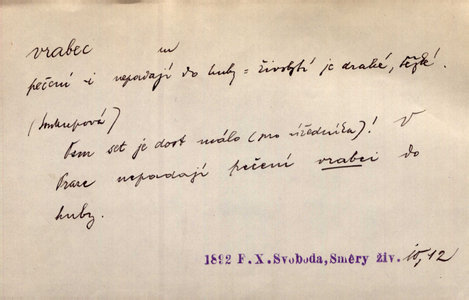 vrabec m
pečení -i nepadají do huby = živobytí je drahé, těžké.
(Soukupová)
Osm set je dost málo (pro úředníka)! V
Praze nepadají pečení vrabci do
huby.
1892 F. X. Svoboda, Směry živ. 12